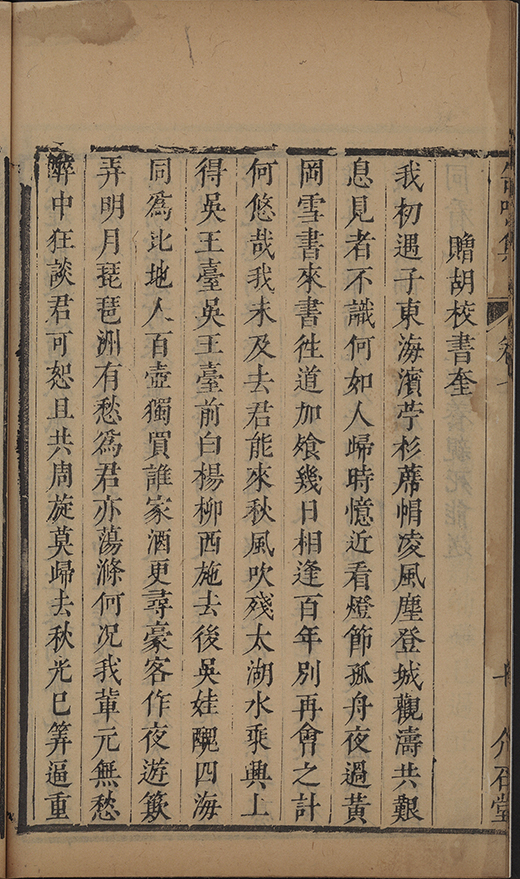 贈胡校書奎
我初遇子東海濱苧杉蓆帽凌風塵登城觀濤共艱
息見者不識何如人歸時憶近看燈節孤舟夜過黃
岡雪書來書徃道加飧幾日相逢百年別再會之計
何悠哉我未及去君能來秋風吹殘太湖水乘興上
得吳王臺吳王臺前白楊柳西施去後吳娃醜四海
同爲此地人百壺獨買誰家酒更尋豪客作夜遊篴
弄明月琵琶洲有愁爲君亦蕩滌何况我輩元無愁
醉中狂談君可恕且共周旋莫歸去秋光已筭逼重